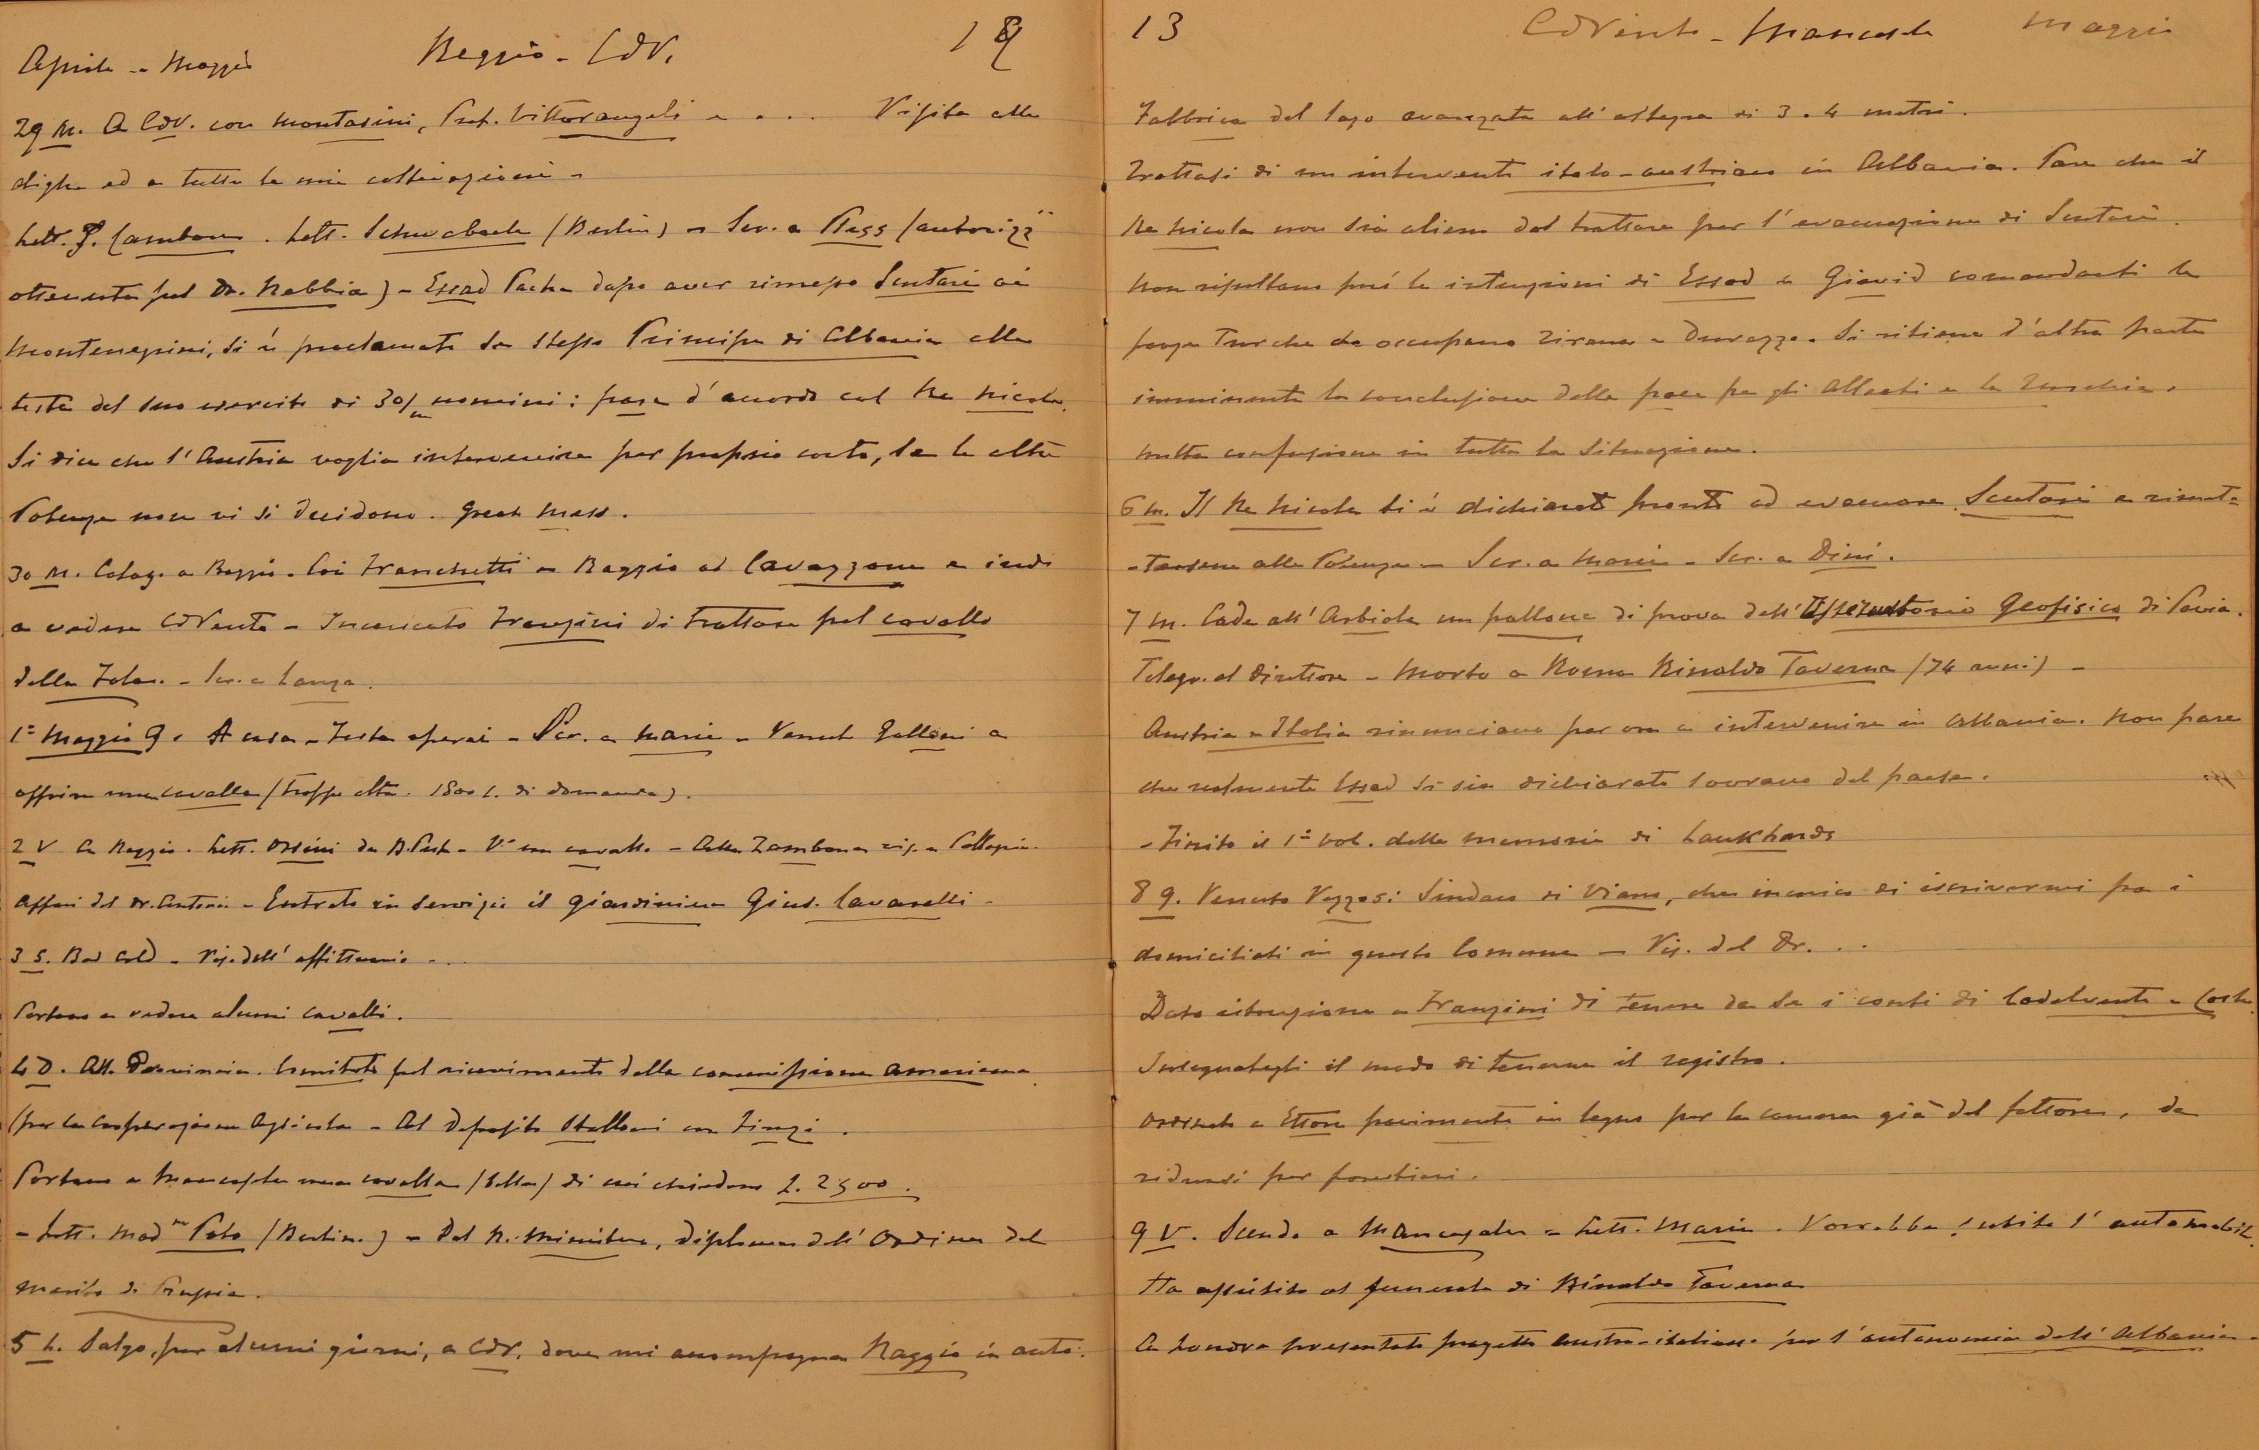 Aprile - Maggio Reggio - CdV. 19
29 M. A CdV. con Montasini, Prof. Vittorangeli e . . . Visita alla
diga ed a tutte le mie coltivazioni -
Lett. J. Cambon. Lett. Schwabach (Berlin) - Scr. a Pless (autorizz
ottenuta pel Dr. Nebbia) - Essad Pacha dopo aver rimesso Scutari ai
Montenegrini, si è proclamato da stesso Principe di Albania alla
testa del suo esercito di 30/m uomini: pare d'accordo col Re Nicola.
Si dice che l'Austria voglia intervenire per proprio conto, se le altre
Potenze non vi si decidono. Great mess.
30 M. Colaz. a Reggio. Coi Franchetti e Raggio ad Cavazzone e indi
a vedere CdVento - Incaricato Franzini di trattare pel cavallo
della Folar. - Scr. a Lanza.
1º Maggio G. A casa - Festa operai - Scr. a Marie - Venuto Galloni a
offrire una cavalla (troppo alta. 1800 l. di domanda).
2 V A Reggio. Lett. Orsini da B.Pest - Vº un cavallo - Alla Zambona vis. a
Affari del Dr. Antonii - Entrato in servizio il giardiniere Gius. Cavarelli -
3 S. Bad cold - Vis. dell' affittuario . . .
Portano a vedere alcuni cavalli.
4 D. All. Provincia. Comitato pel ricevimento della commissione americana
(per la cooperazione Agricola - Al Deposito Stalloni con Finzi.
Portano a Mancasale una cavalla (bella) di cui chiedono L. 2500.
- Lett. Mad.me (Berlin.) - Dal R. Ministero, diploma dell' Ordine del
merito di Prussia.
5 L. Salgo, per alcuni giorni, a CdV. dove mi accompagna Raggio in auto.
13 CdVento - Mancasale Maggio
Fabbrica del lago avanzata all' altezza di 3.4 metri.
Trattasi di un intervento italo-austriaco in Albania. Pare che il
Re Nicola non sia alieno dal trattare per l'evacuazione di Scutari.
Non risultano però le intenzioni di Essad e Giavid comandanti le
forze Turche che occupano Tirana e Durazzo. Si ritiene d'altra parte
imminente la conclusione della pace fra gli Alleati e la Turchia.
molta confusione in tutta la situazione.
6 M. Il Re Nicola si è dichiarato pronto ad evacuare Scutari e rimet=
-tersene alle Potenze - Scr. a Marie - Scr. a Dini.
7 M. Cade all' Arbiola un pallone di prova dell' Osservatorio Geofisico di Pavia.
Telegr. al Direttore - Morto a Roma Rinaldo Taverna (74 anni) -
Austria e Italia rinunciano per ora a intervenire in Albania. Non pare
che realmente Essad si sia dichiarato sovrano del paese.
- Finito il 1º vol. delle memorie di Laukhards
8 G. Venuto Vezzosi Sindaco di Viano, che incarico di iscrivermi fra i
domiciliati in questo Comune - Vis. del Dr. . .
Dato istruzione a Franzini di tenere da se i conti di Cadelvento e Corte.
Insegnategli il modo di tenerne il registro.
Ordinato a Ettore pavimento in legno per la camera già del fattore, da
ridursi per forestieri.
9 V. Scendo a Mancasale - Lett. Marie. Vorrebbe subito l' automobile.
Ha assistito al funerale di Rinaldo Taverna
A Londra presentato progetto austro-italiano per l'autonomia dell' Albania.